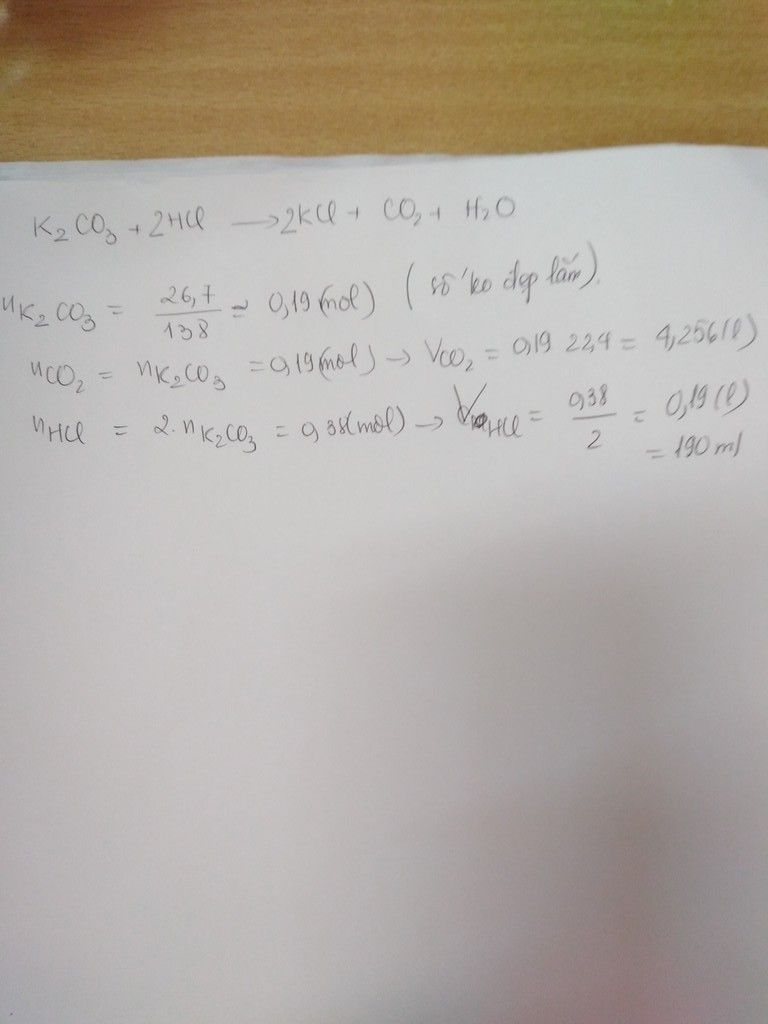 K₂CO₃ + 2HCl → 2KCl + CO₂ + H₂O
nK₂CO₃ = 26,7/138 ≈ 0,19 (mol) (số ko đẹp lắm).
nCO₂ = nK₂CO₃ = 0,19 (mol) → VCO₂ = 0,19 22,4 = 4,256 (l)
nHCl = 2. nK₂CO₃ = 0,38 (mol) → VHCl = 0,38/2 = 0,19 (l)
= 190 ml